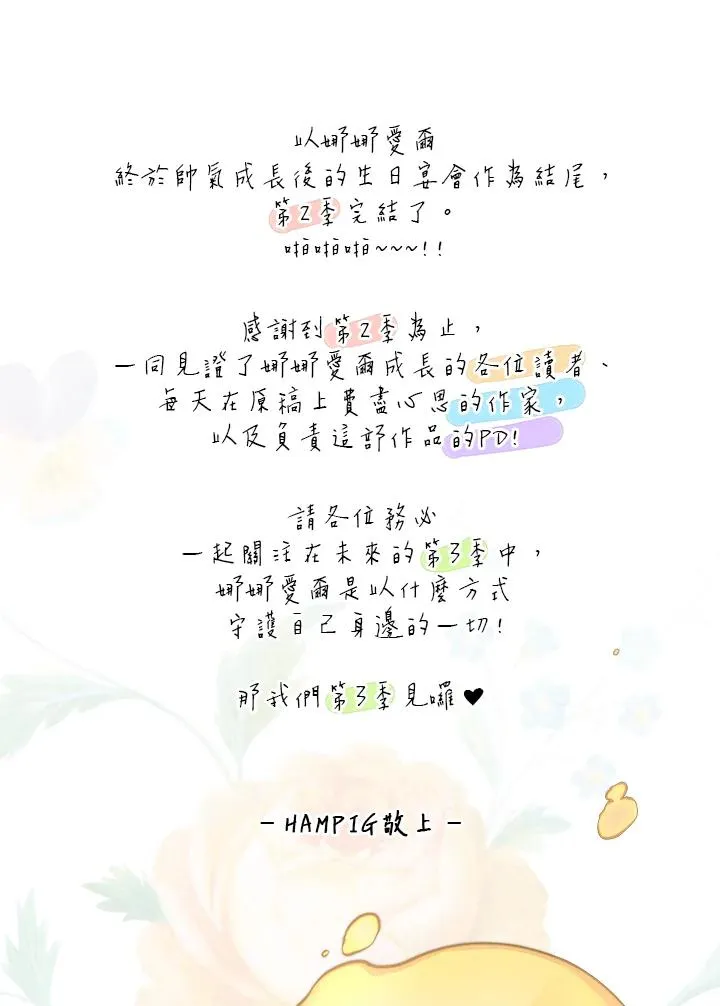 以娜娜愛爾
終於帥氣成長後的生日宴會作為結尾，
第2季完結了。
啪啪啪~~~!!
感謝到第2季為止，
一同見證了娜娜愛爾成長的各位讀者、
每天在原稿上費盡心思的作家，
以及負責這部作品的PD!
請各位務必
一起關注在未來的第3季中，
娜娜愛爾是以什麼方式
守護自己身邊的一切!
那我們第3季見囉♥
－HAMPIG敬上－